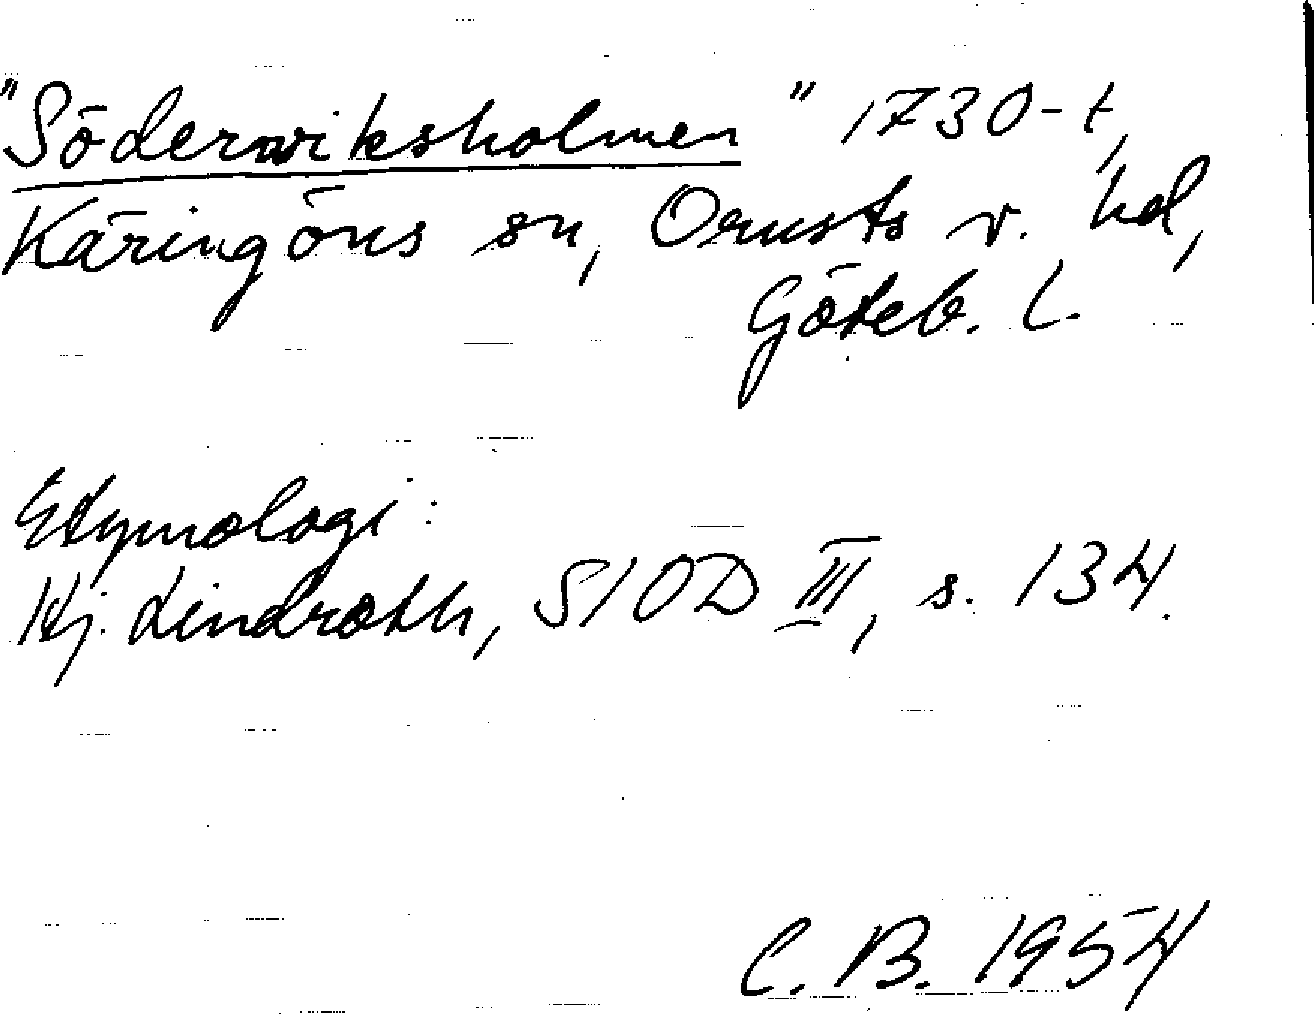 "Söderwiksholmen" 1730-t,
Käringöns sn, Orusts v. hd,
Göteb. l.
Etymologi:
Hj. Lindroth, SIOD III, s. 134.
C. B. 1954